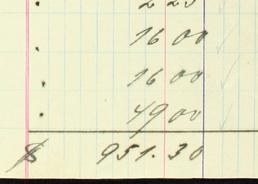 2 25
16 00
16 00
49 00
$ 951.30